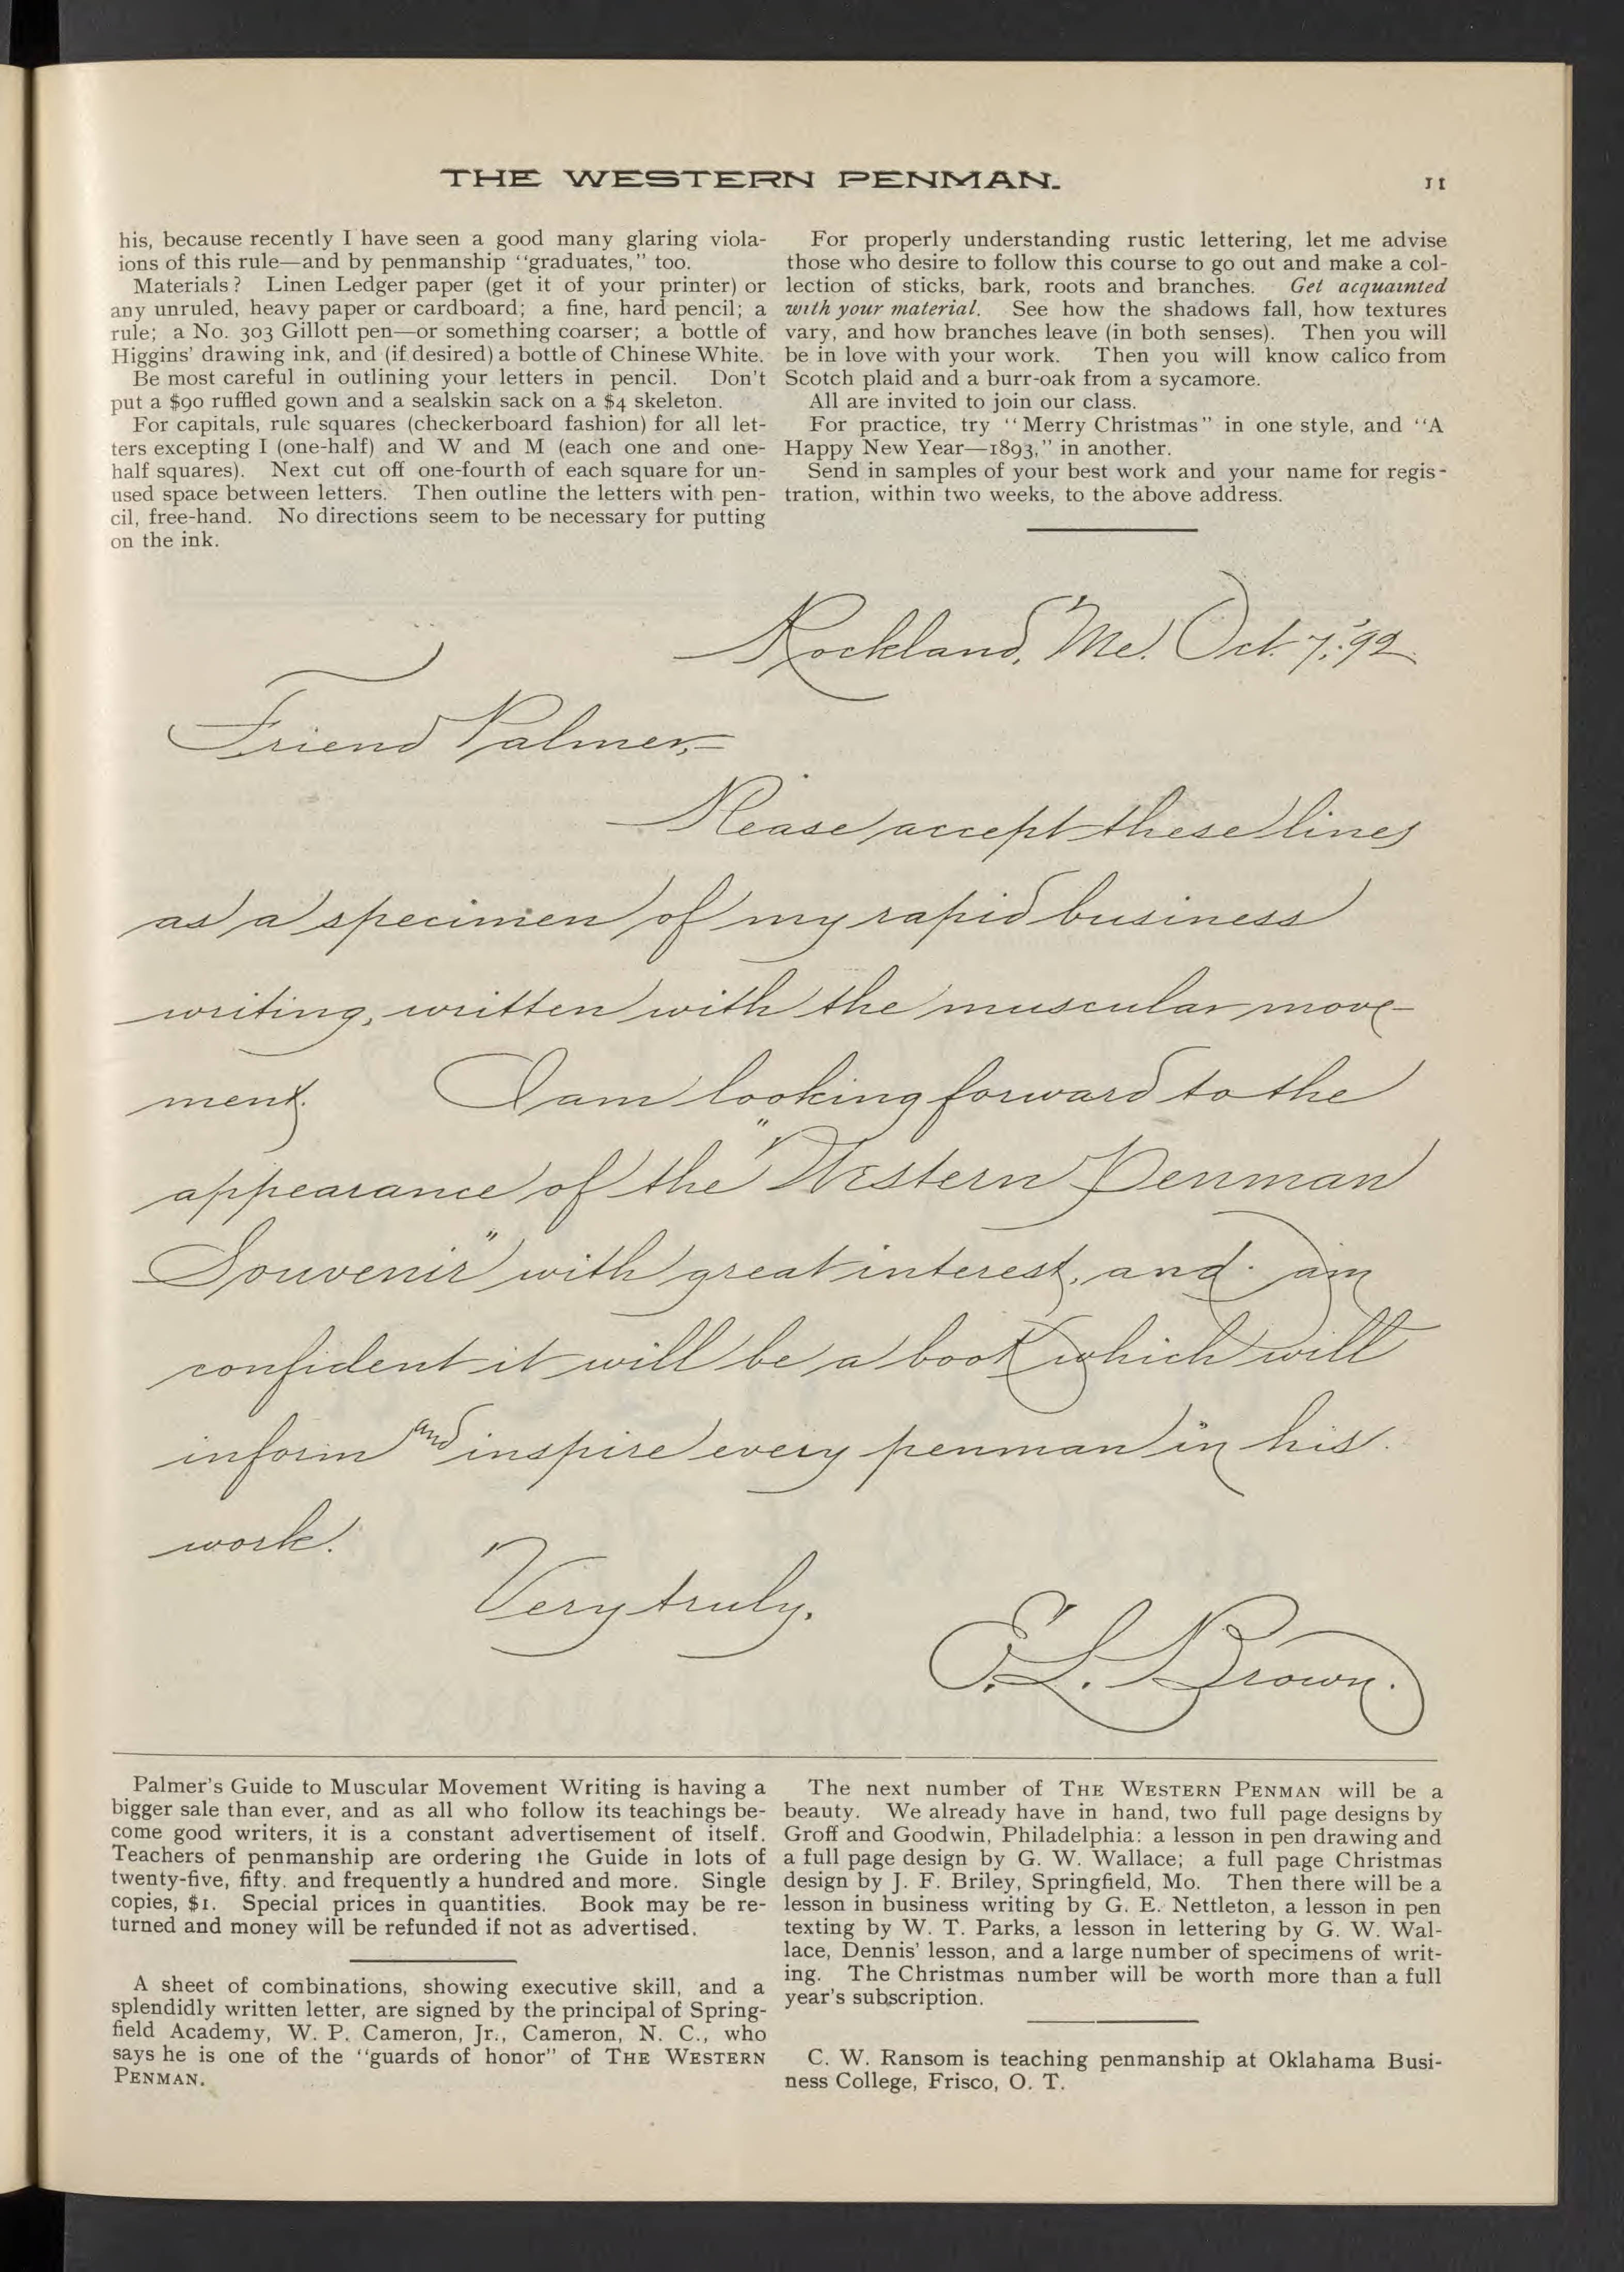 THE WESTERN PENMAN.
11
his, because recently I have seen a good many glaring viola-
ions of this rule—and by penmanship "graduates," too.
Materials? Linen Ledger paper (get it of your printer) or
any unruled, heavy paper or cardboard; a fine, hard pencil; a
rule; a No. 303 Gillott pen—or something coarser; a bottle of
Higgins' drawing ink, and (if desired) a bottle of Chinese White.
Be most careful in outlining your letters in pencil. Don't
put a $90 ruffled gown and a sealskin sack on a $4 skeleton.
For capitals, rule squares (checkerboard fashion) for all let-
ters excepting I (one-half) and W and M (each one and one-
half squares). Next cut off one-fourth of each square for un-
used space between letters. Then outline the letters with pen-
cil, free-hand. No directions seem to be necessary for putting
on the ink.
For properly understanding rustic lettering, let me advise
those who desire to follow this course to go out and make a col-
lection of sticks, bark, roots and branches. Get acquainted
with your material. See how the shadows fall, how textures
vary, and how branches leave (in both senses). Then you will
be in love with your work. Then you will know calico from
Scotch plaid and a burr-oak from a sycamore.
All are invited to join our class.
For practice, try "Merry Christmas" in one style, and "A
Happy New Year—1893," in another.
Send in samples of your best work and your name for regis-
tration, within two weeks, to the above address.
Rockland, Me. Oct. 7, '92.
Friend Palmer,—
Please accept these lines
as a specimen of my rapid business
writing, written with the muscular move-
ment. I am looking forward to the
appearance of the "Western Penman
Souvenir" with great interest, and am
confident it will be a book which will
inform and inspire every penman in his
work.
Very truly,
E. L. Brown.
Palmer's Guide to Muscular Movement Writing is having a
bigger sale than ever, and as all who follow its teachings be-
come good writers, it is a constant advertisement of itself.
Teachers of penmanship are ordering the Guide in lots of
twenty-five, fifty. and frequently a hundred and more. Single
copies, $1. Special prices in quantities. Book may be re-
turned and money will be refunded if not as advertised.
A sheet of combinations, showing executive skill, and a
splendidly written letter, are signed by the principal of Spring-
field Academy, W. P. Cameron, Jr., Cameron, N. C., who
says he is one of the "guards of honor" of THE WESTERN
PENMAN.
The next number of THE WESTERN PENMAN will be a
beauty. We already have in hand, two full page designs by
Groff and Goodwin, Philadelphia: a lesson in pen drawing and
a full page design by G. W. Wallace; a full page Christmas
design by J. F. Briley, Springfield, Mo. Then there will be a
lesson in business writing by G. E. Nettleton, a lesson in pen
texting by W. T. Parks, a lesson in lettering by G. W. Wal-
lace, Dennis' lesson, and a large number of specimens of writ-
ing. The Christmas number will be worth more than a full
year's subscription.
C. W. Ransom is teaching penmanship at Oklahama Busi-
ness College, Frisco, O. T.